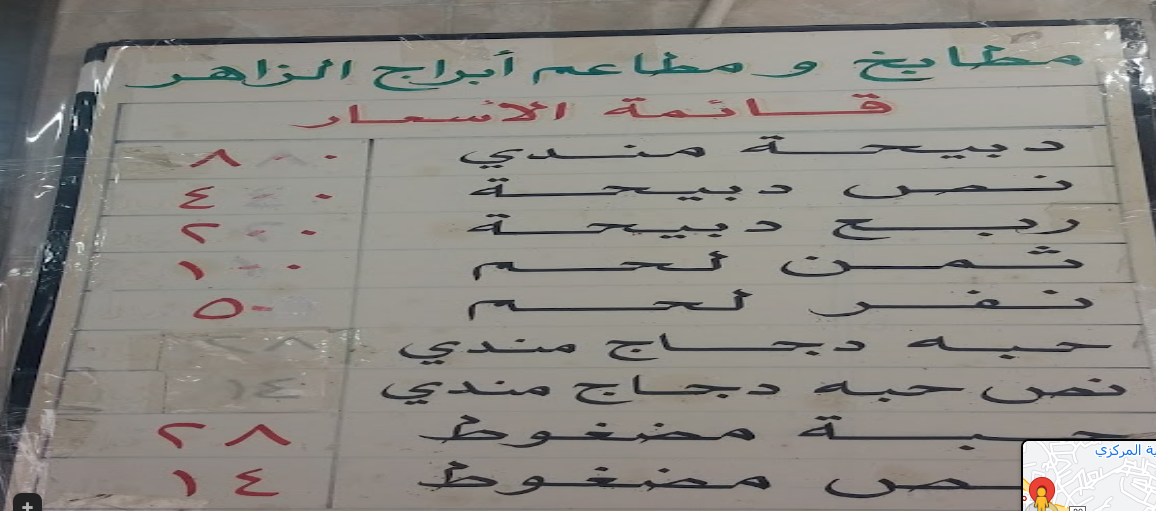 مطابخ ومطاعم أبراج الزاهر
قائمة الأسعار
دبيحة مندي ٨٠٠
نص دبيحة ٤٠٠
ربع دبيحة ٢٠٠
ثمن لحم ١٠٠
نفر لحم ٥٠
حبه دجاج مندي ٢٨
نص حبه دجاج مندي ١٤
حبة مضغوط ٢٨
ـص مضغوط ١٤
ية المركزي